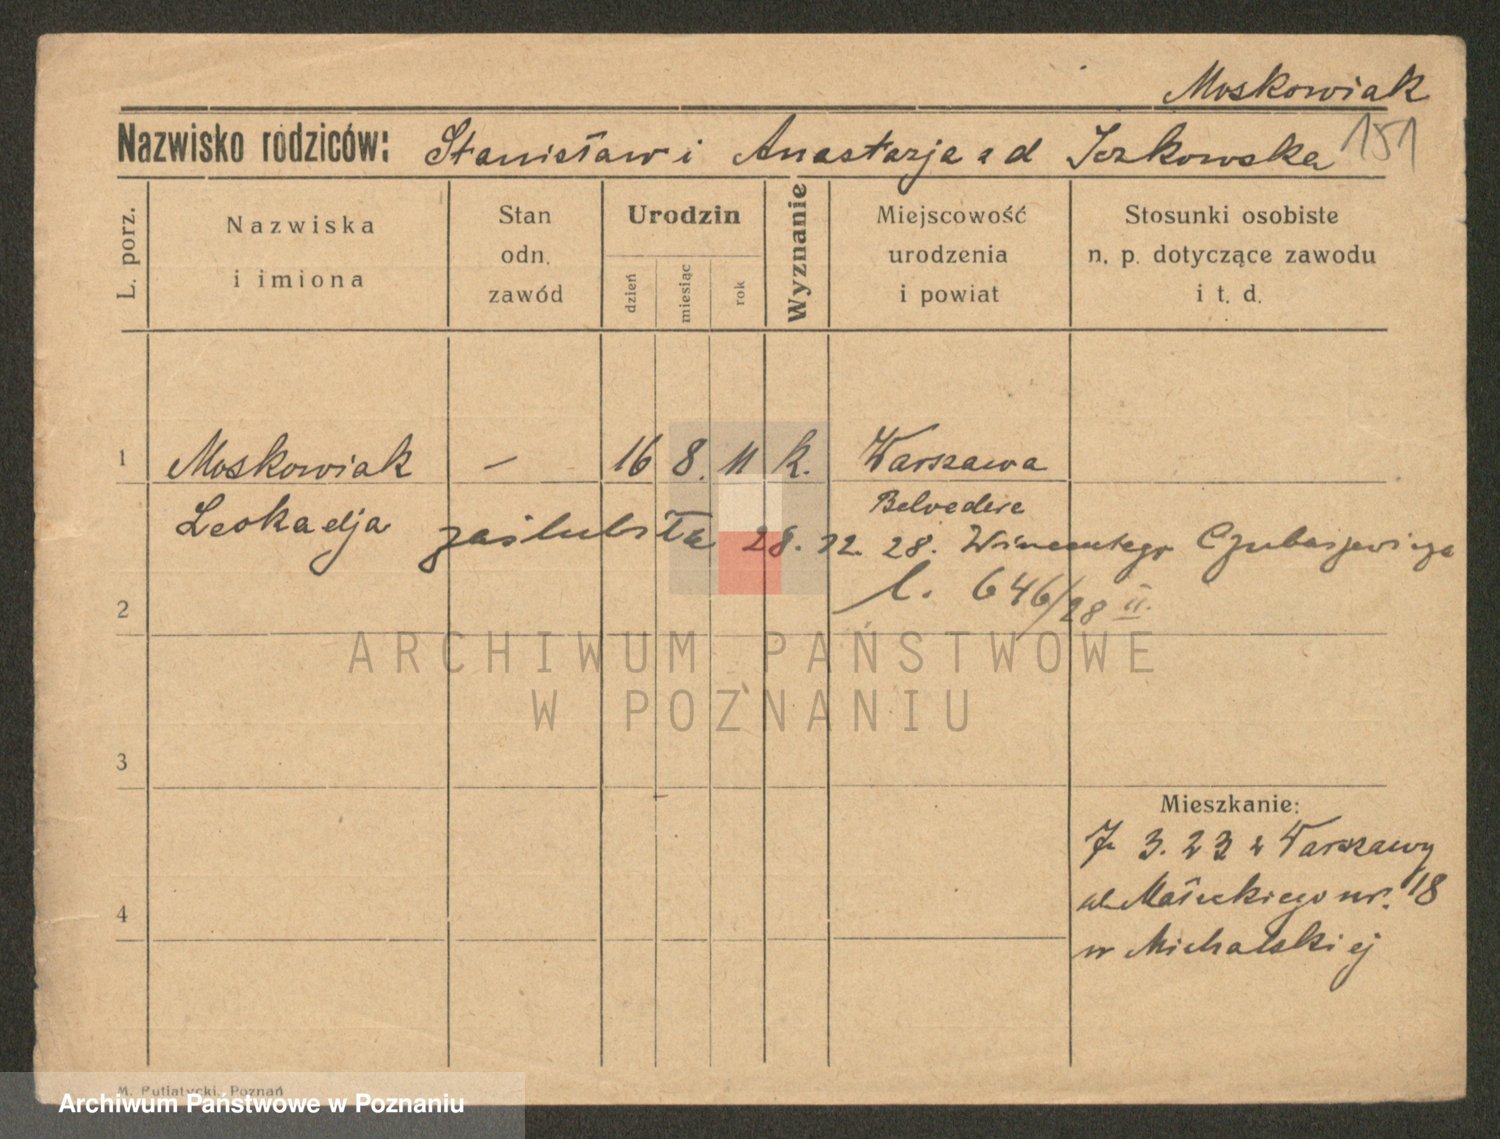 Moskowiak
151
Nazwisko rodziców: Stanisław i Anastazja
L. porz.
Nazwiska i imiona
Stan odn. zawód
Urodzin
dzień
miesiąc
rok
Wyznanie
Miejscowość urodzenia i powiat
Stosunki osobiste n. p. dotyczące zawodu i t. d.
1 Moskowiak — 16 8. 11 k. Warszawa
Leokadja Belvedere
zaślubiła 28. 12. 28. Wincentego
2 l. 646/28 II.
3
Mieszkanie:
7. 3. 23 z Warszawy
4 ul. Małeckiego nr. 18
w Michalskiej
M. Putiatycki, Poznań
ARCHIWUM PAŃSTWOWE
W POZNANIU
Archiwum Państwowe w Poznaniu